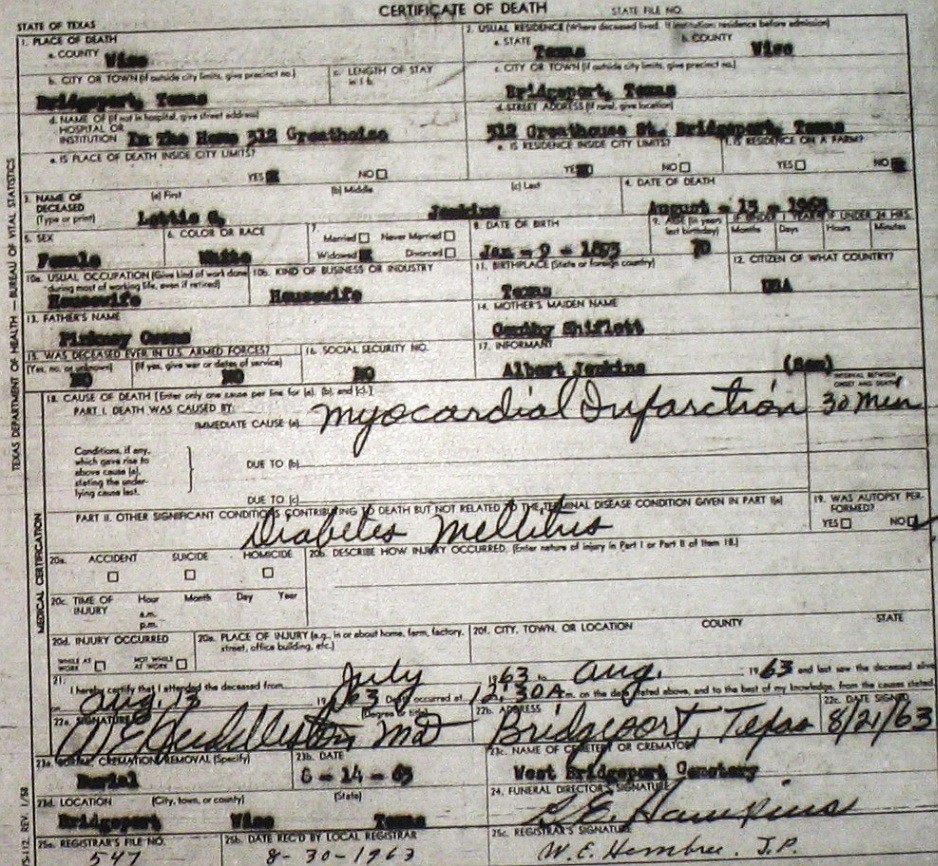 CERTIFICATE OF DEATH STATE FILE NO.
STATE OF TEXAS
1. PLACE OF DEATH
a. COUNTY Wise
2. USUAL RESIDENCE (Where deceased lived. If institution: residence before admission)
a. STATE Texas b. COUNTY Wise
b. CITY OR TOWN (If outside city limits, give precinct no.)
Bridgeport, Texas
c. LENGTH OF STAY in 1 b.
c. CITY OR TOWN (If outside city limits, give precinct no.)
Bridgeport, Texas
d. NAME OF (If not in hospital, give street address)
HOSPITAL OR
INSTITUTION In The Home 512 Greathoise
d. STREET ADDRESS (If rural, give location)
512 Greathouse St. Bridgeport, Texas
e. IS PLACE OF DEATH INSIDE CITY LIMITS?
YES NO
e. IS RESIDENCE INSIDE CITY LIMITS?
YES NO
f. IS RESIDENCE ON A FARM?
YES NO
3. NAME OF DECEASED (Type or print)
(a) First (b) Middle (c) Last
Lettie G. Jenkins
4. DATE OF DEATH
August - 13 - 1963
5. SEX
Female
6. COLOR OR RACE
White
7.
Married Never Married
Widowed Divorced
8. DATE OF BIRTH
Jan - 9 - 1893
9. AGE (In years last birthday)
70
IF UNDER 1 YEAR IF UNDER 24 HRS.
Months Days Hours Minutes
10a. USUAL OCCUPATION (Give kind of work done during most of working life, even if retired)
Housewife
10b. KIND OF BUSINESS OR INDUSTRY
Housewife
11. BIRTHPLACE (State or foreign country)
Texas
12. CITIZEN OF WHAT COUNTRY?
USA
13. FATHER'S NAME
Pinkney Owens
14. MOTHER'S MAIDEN NAME
Shiflett
15. WAS DECEASED EVER IN U.S. ARMED FORCES?
(Yes, no, or unknown) (If yes, give war or dates of service)
NO NO
16. SOCIAL SECURITY NO.
NO
17. INFORMANT
Albert Jenkins (Son)
18. CAUSE OF DEATH [Enter only one cause per line for (a), (b), and (c).]
INTERVAL BETWEEN ONSET AND DEATH
PART I. DEATH WAS CAUSED BY:
IMMEDIATE CAUSE (a) Myocardial Infarction 30 Min
Conditions, if any,
which gave rise to
above cause (a),
stating the under-
lying cause last.
DUE TO (b)
DUE TO (c)
PART II. OTHER SIGNIFICANT CONDITIONS CONTRIBUTING TO DEATH BUT NOT RELATED TO THE TERMINAL DISEASE CONDITION GIVEN IN PART I(a)
Diabetes Mellitus
19. WAS AUTOPSY PERFORMED?
YES NO
20a. ACCIDENT SUICIDE HOMICIDE
20b. DESCRIBE HOW INJURY OCCURRED. (Enter nature of injury in Part I or Part II of Item 18.)
20c. TIME OF INJURY
Hour Month Day Year
a.m.
p.m.
20d. INJURY OCCURRED
WHILE AT WORK NOT WHILE AT WORK
20e. PLACE OF INJURY (e.g., in or about home, farm, factory, street, office building, etc.)
20f. CITY, TOWN, OR LOCATION COUNTY STATE
21.
I hereby certify that I attended the deceased from July 1963 to Aug. 1963 and last saw the deceased alive
on Aug. 13 1963 Death occurred at 12:30A m. on the date stated above, and to the best of my knowledge, from the causes stated.
22a. SIGNATURE (Degree or title)
MD
22b. ADDRESS
Bridgeport, Texas
22c. DATE SIGNED
8/21/63
23a. BURIAL, CREMATION, REMOVAL (Specify)
Burial
23b. DATE
8 - 14 - 63
23c. NAME OF CEMETERY OR CREMATORY
West Bridgeport Cemetery
23d. LOCATION (City, town, or county) (State)
Bridgeport Wise Texas
24. FUNERAL DIRECTOR'S SIGNATURE
Hawkins
25a. REGISTRAR'S FILE NO.
547
25b. DATE REC'D BY LOCAL REGISTRAR
8-30-1963
25c. REGISTRAR'S SIGNATURE
W. E. Hembree. J.P.
TEXAS DEPARTMENT OF HEALTH — BUREAU OF VITAL STATISTICS
MEDICAL CERTIFICATION
VS-112, REV. 1/58